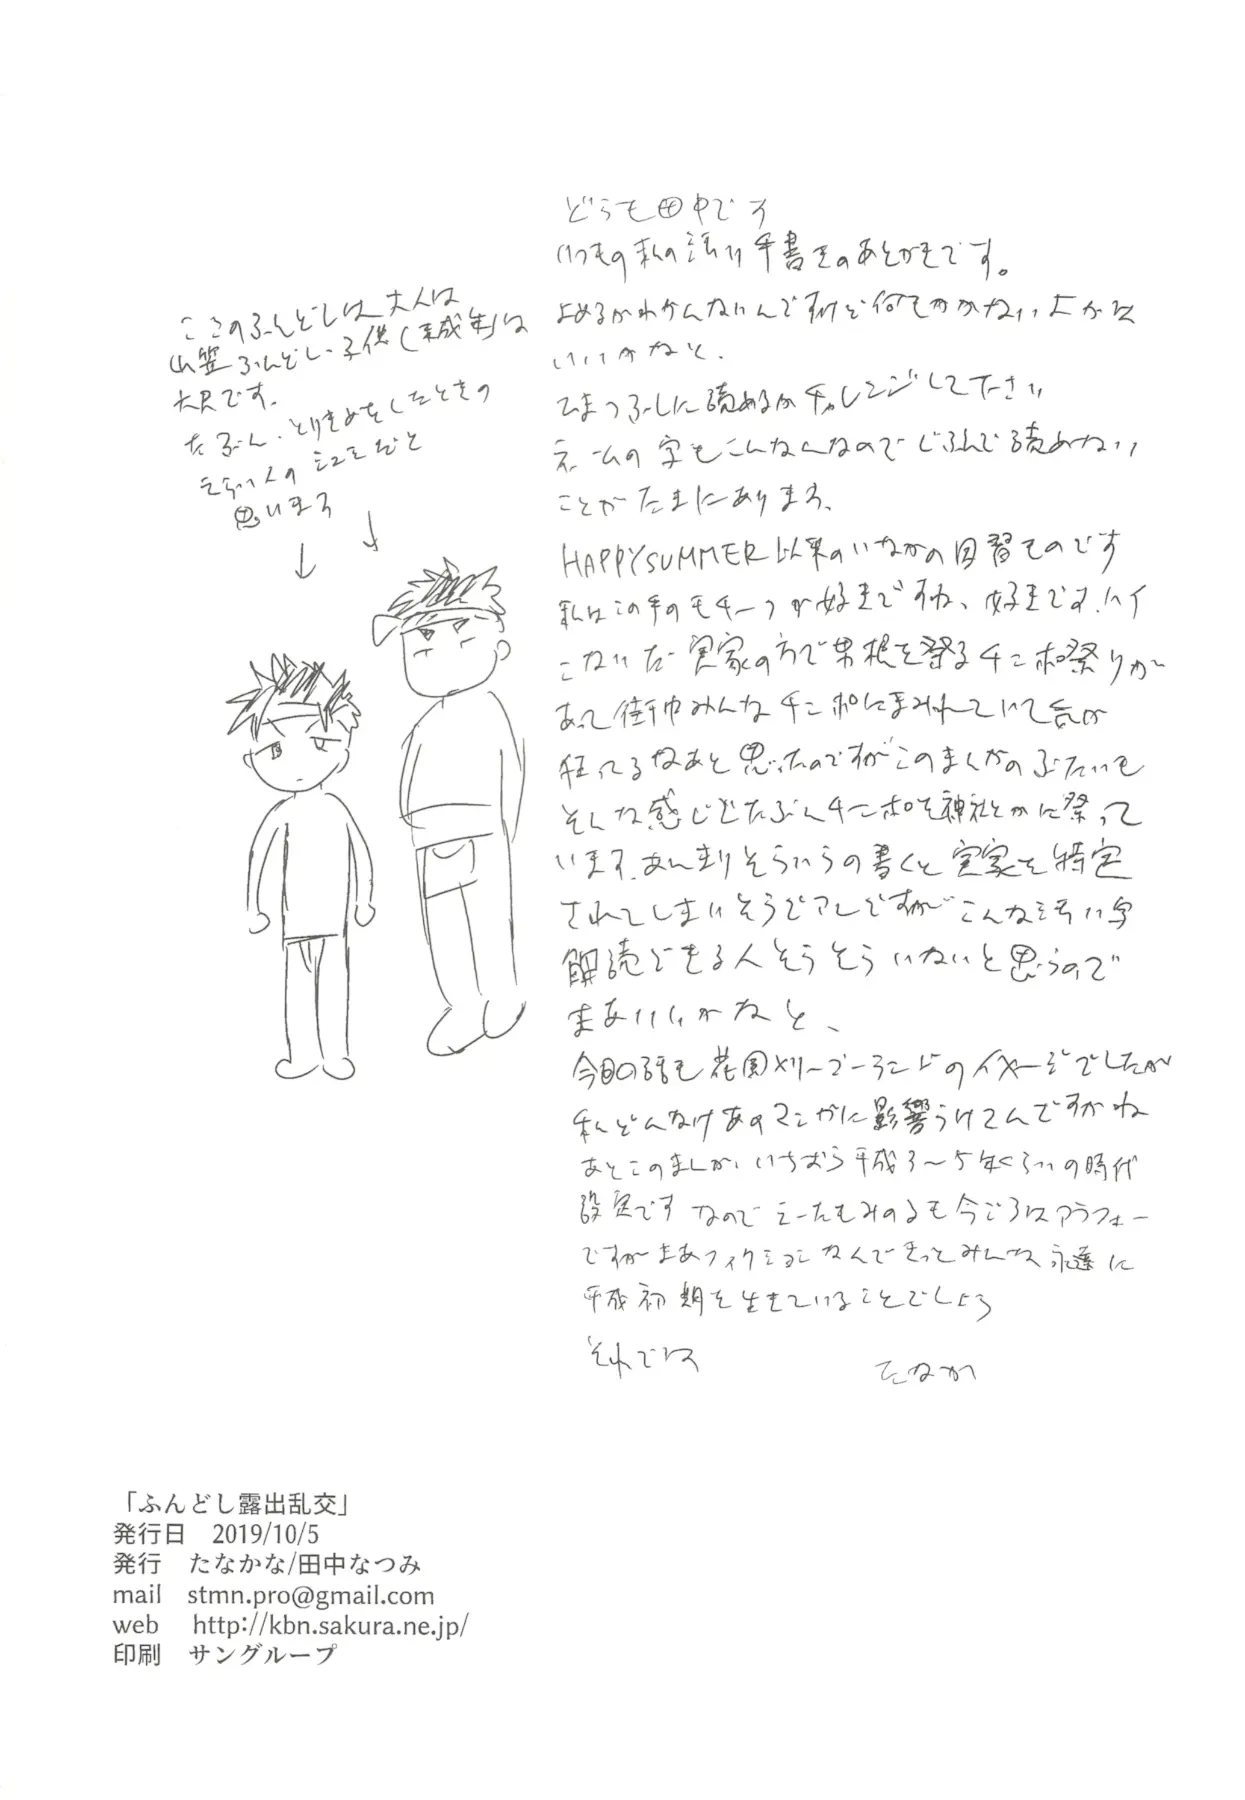 どうも田中です
いつもの私の汚い手書きのあとがきです。
よめるかわかんないんですけど何もかかないよかは
いいかなと、
ひまつぶしに読めるかチャレンジして下さい
ネームの字もこんなんなのでじぶんで読めない
ことがたまにあります、
HAPPYSUMMER以来のいなかの因習ものです
私はこの手のモチーフが好きですね、好きです、ハイ
こないだ実家の方で男根を祭るチンポ祭りが
あって街中みんなチンポにまみれていて
狂ってるなあと思ったのですがこのまんがのぶたいも
そんな感じでたぶんチンポを神社とかに祭って
います、あんまりそういうの書くと実家を特定
されてしまいそうでアレですがこんな汚い字
解読できる人そうそういないと思うので
まあいいかなと、
今回の話も花園メリーゴーランドのイメージでしたが
私どんなけあのマンガに影響うけてんですかね
あとこのまんが、いちおう平成3〜5年くらいの時代
設定です なので もみのるも今ごろはアラフォー
ですがまあフィクションなんできっとみんな永遠に
平成初期を生きていることでしょう
それでは
たなか
ここのふんどしは大人は
山笠ふんどし、子供(未成年)は
六尺です、
たぶん、とりきめをしたときの
えらい人の だと
思います
「ふんどし露出乱交」
発行日 2019/10/5
発行 たなかな/田中なつみ
mail stmn.pro@gmail.com
web http://kbn.sakura.ne.jp/
印刷 サングループ